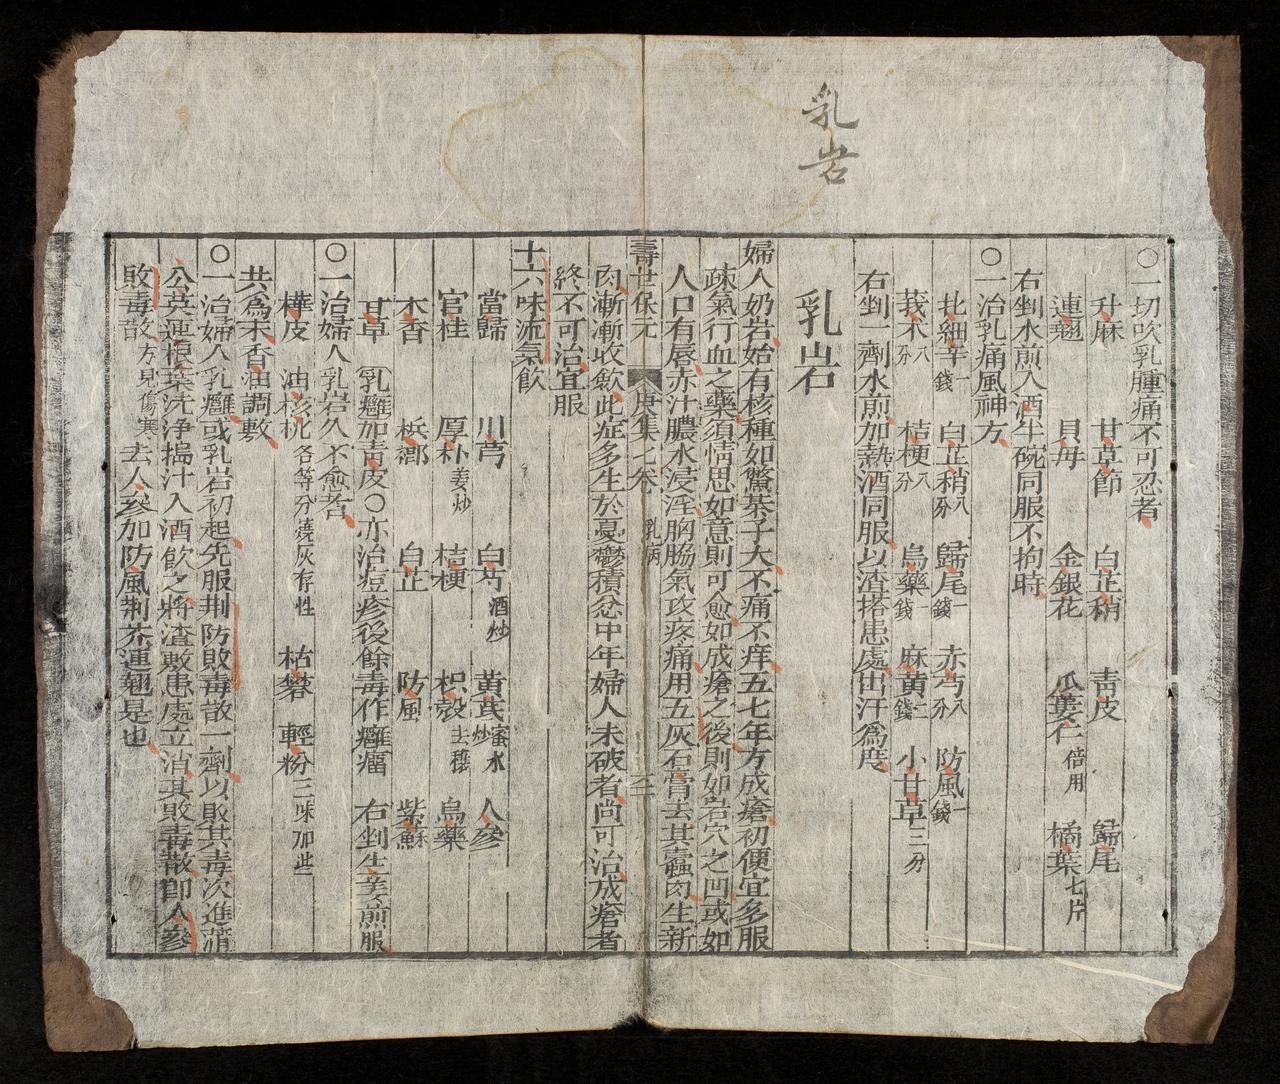 乳岩
○一切吹乳腫痛不可忍者
升麻 甘草節 白芷稍 青皮 歸尾
連翹 貝母 金銀花 瓜蔞仁倍用 橘葉七片
右剉水煎入酒半碗同服不拘時
○一治乳痛風神方
北細辛一錢 白芷稍八分 歸尾一錢 赤芍八分 防風一錢
莪朮八分 桔梗八分 烏藥一錢 麻黄二錢 小甘草三分
右剉一劑水煎加熱酒同服以渣搭患處出汗爲度
乳岩
婦人奶岩始有核種如鱉棊子大不痛不痒五七年方成瘡初便宜多服
疎氣行血之藥須情思如意則可愈如成瘡之後則如岩穴之凹或如
人口有唇赤汁膿水浸淫胸脇氣攻疼痛用五灰石膏去其蠹肉生新
肉漸漸收歛此症多生於憂鬱積忿中年婦人未破者尚可治成瘡者
終不可治宜服
壽世保元 庚集七卷 乳病 三
十六味流氣飲
當歸 川芎 白芍酒炒 黄芪蜜水炒 人參
官桂 厚朴姜炒 桔梗 枳殼去穰 烏藥
木香 梹榔 白芷 防風 紫蘇
甘草 乳癰加青皮○亦治痘疹後餘毒作癰瘤 右剉生姜煎服
○一治婦人乳岩久不愈者
樺皮 油核桃各等分燒灰存性 枯礬 輕粉二味加些
共爲末香油調敷
○一治婦人乳癰或乳岩初起先服荆防敗毒散一劑以敗其毒次進蒲
公英連根葉洗浄搗汁入酒飲之將渣敷患處立消其敗毒散卽人參
敗毒散方見傷寒去人參加防風荆芥連翹是也